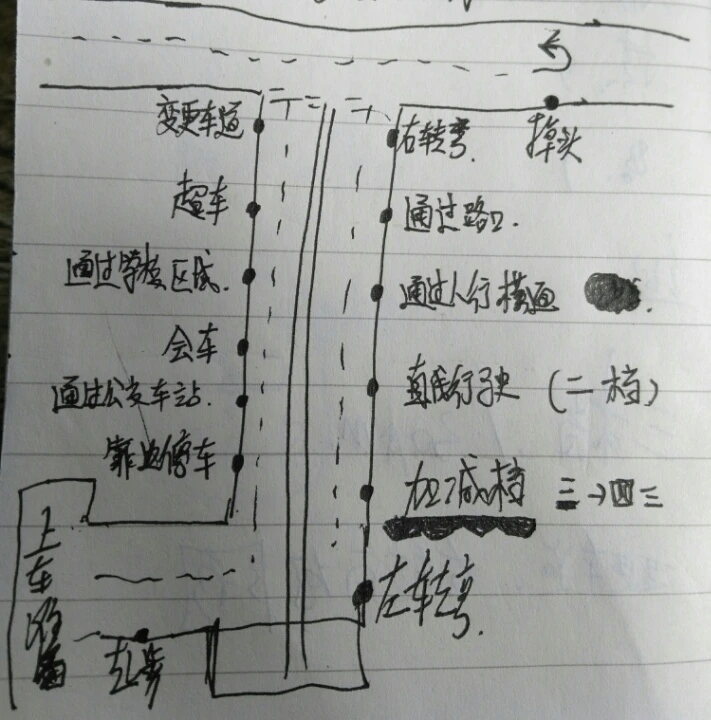 变更车道
右转弯.
掉头
超车
通过路口.
通过学校区域.
通过人行横道
会车
直线行驶 (二档)
通过公交车站.
靠边停车
加减档 三→四三
左转弯.
上车准备
起步